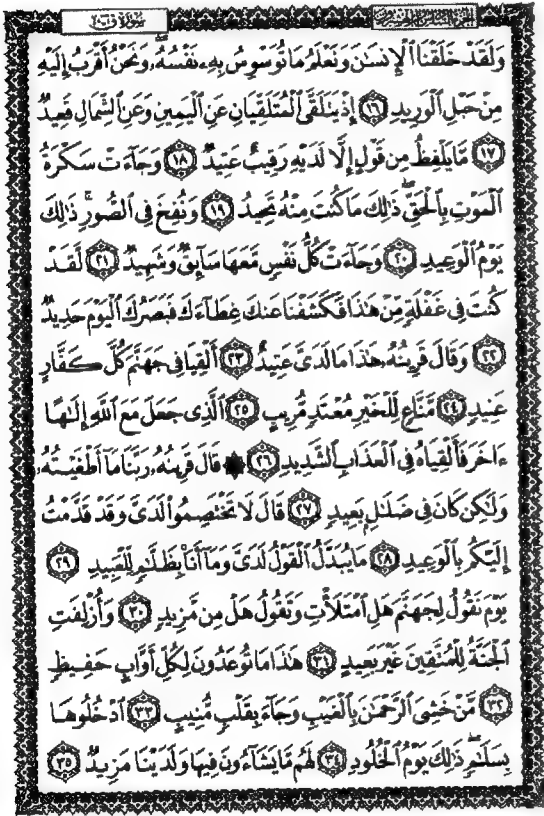 الجزء السادس والعشرون سورة ق
وَلَقَدْ خَلَقْنَا ٱلْإِنسَٰنَ وَنَعْلَمُ مَا تُوَسْوِسُ بِهِۦ نَفْسُهُۥ وَنَحْنُ أَقْرَبُ إِلَيْهِ
مِنْ حَبْلِ ٱلْوَرِيدِ ١٦ إِذْ يَتَلَقَّى ٱلْمُتَلَقِّيَانِ عَنِ ٱلْيَمِينِ وَعَنِ ٱلشِّمَالِ قَعِيدٌ
١٧ مَّا يَلْفِظُ مِن قَوْلٍ إِلَّا لَدَيْهِ رَقِيبٌ عَتِيدٌ ١٨ وَجَآءَتْ سَكْرَةُ
ٱلْمَوْتِ بِٱلْحَقِّ ۖ ذَٰلِكَ مَا كُنتَ مِنْهُ تَحِيدُ ١٩ وَنُفِخَ فِى ٱلصُّورِ ۚ ذَٰلِكَ
يَوْمُ ٱلْوَعِيدِ ٢٠ وَجَآءَتْ كُلُّ نَفْسٍ مَّعَهَا سَآئِقٌ وَشَهِيدٌ ٢١ لَّقَدْ
كُنتَ فِى غَفْلَةٍ مِّنْ هَٰذَا فَكَشَفْنَا عَنكَ غِطَآءَكَ فَبَصَرُكَ ٱلْيَوْمَ حَدِيدٌ
٢٢ وَقَالَ قَرِينُهُۥ هَٰذَا مَا لَدَىَّ عَتِيدٌ ٢٣ أَلْقِيَا فِى جَهَنَّمَ كُلَّ كَفَّارٍ
عَنِيدٍ ٢٤ مَّنَّاعٍ لِّلْخَيْرِ مُعْتَدٍ مُّرِيبٍ ٢٥ ٱلَّذِى جَعَلَ مَعَ ٱللَّهِ إِلَٰهًا
ءَاخَرَ فَأَلْقِيَاهُ فِى ٱلْعَذَابِ ٱلشَّدِيدِ ٢٦ ۞ قَالَ قَرِينُهُۥ رَبَّنَا مَآ أَطْغَيْتُهُۥ
وَلَٰكِن كَانَ فِى ضَلَٰلٍۭ بَعِيدٍ ٢٧ قَالَ لَا تَخْتَصِمُوا۟ لَدَىَّ وَقَدْ قَدَّمْتُ
إِلَيْكُم بِٱلْوَعِيدِ ٢٨ مَا يُبَدَّلُ ٱلْقَوْلُ لَدَىَّ وَمَآ أَنَا۠ بِظَلَّٰمٍ لِّلْعَبِيدِ ٢٩
يَوْمَ نَقُولُ لِجَهَنَّمَ هَلِ ٱمْتَلَأْتِ وَتَقُولُ هَلْ مِن مَّزِيدٍ ٣٠ وَأُزْلِفَتِ
ٱلْجَنَّةُ لِلْمُتَّقِينَ غَيْرَ بَعِيدٍ ٣١ هَٰذَا مَا تُوعَدُونَ لِكُلِّ أَوَّابٍ حَفِيظٍ
٣٢ مَّنْ خَشِىَ ٱلرَّحْمَٰنَ بِٱلْغَيْبِ وَجَآءَ بِقَلْبٍ مُّنِيبٍ ٣٣ ٱدْخُلُوهَا
بِسَلَٰمٍ ۖ ذَٰلِكَ يَوْمُ ٱلْخُلُودِ ٣٤ لَهُم مَّا يَشَآءُونَ فِيهَا وَلَدَيْنَا مَزِيدٌ ٣٥